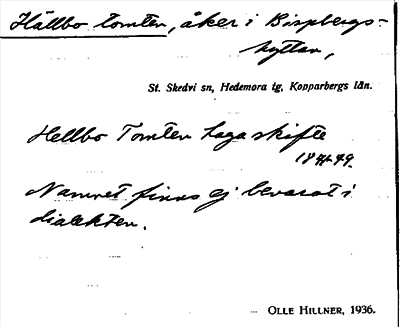 Hällbo tomten, åker i Bispbergs-
hyttan,
St. Skedvi sn, Hedemora tg, Kopparbergs län.
Hellbo Tomten Laga skifte
1844-49.
Namnet finns ej bevarat i
dialekten.
OLLE HILLNER, 1936.